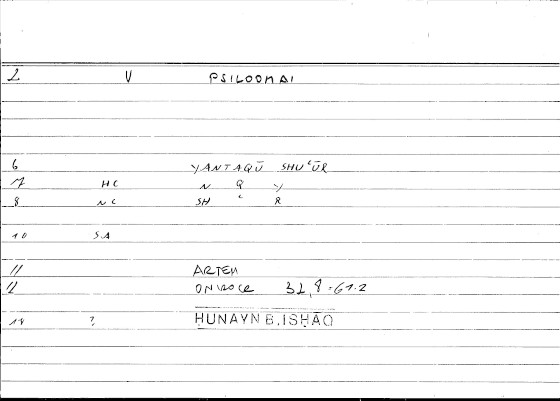 2 V PSILOOMAI
6 YANTAQŪ SHUʿŪR
7 HC N Q Y
8 NC SH ʿ R
10 SA
11 ARTEM
12 ONIROCR 32,8-61.2
14 ? ḤUNAYN B.ISḤĀQ